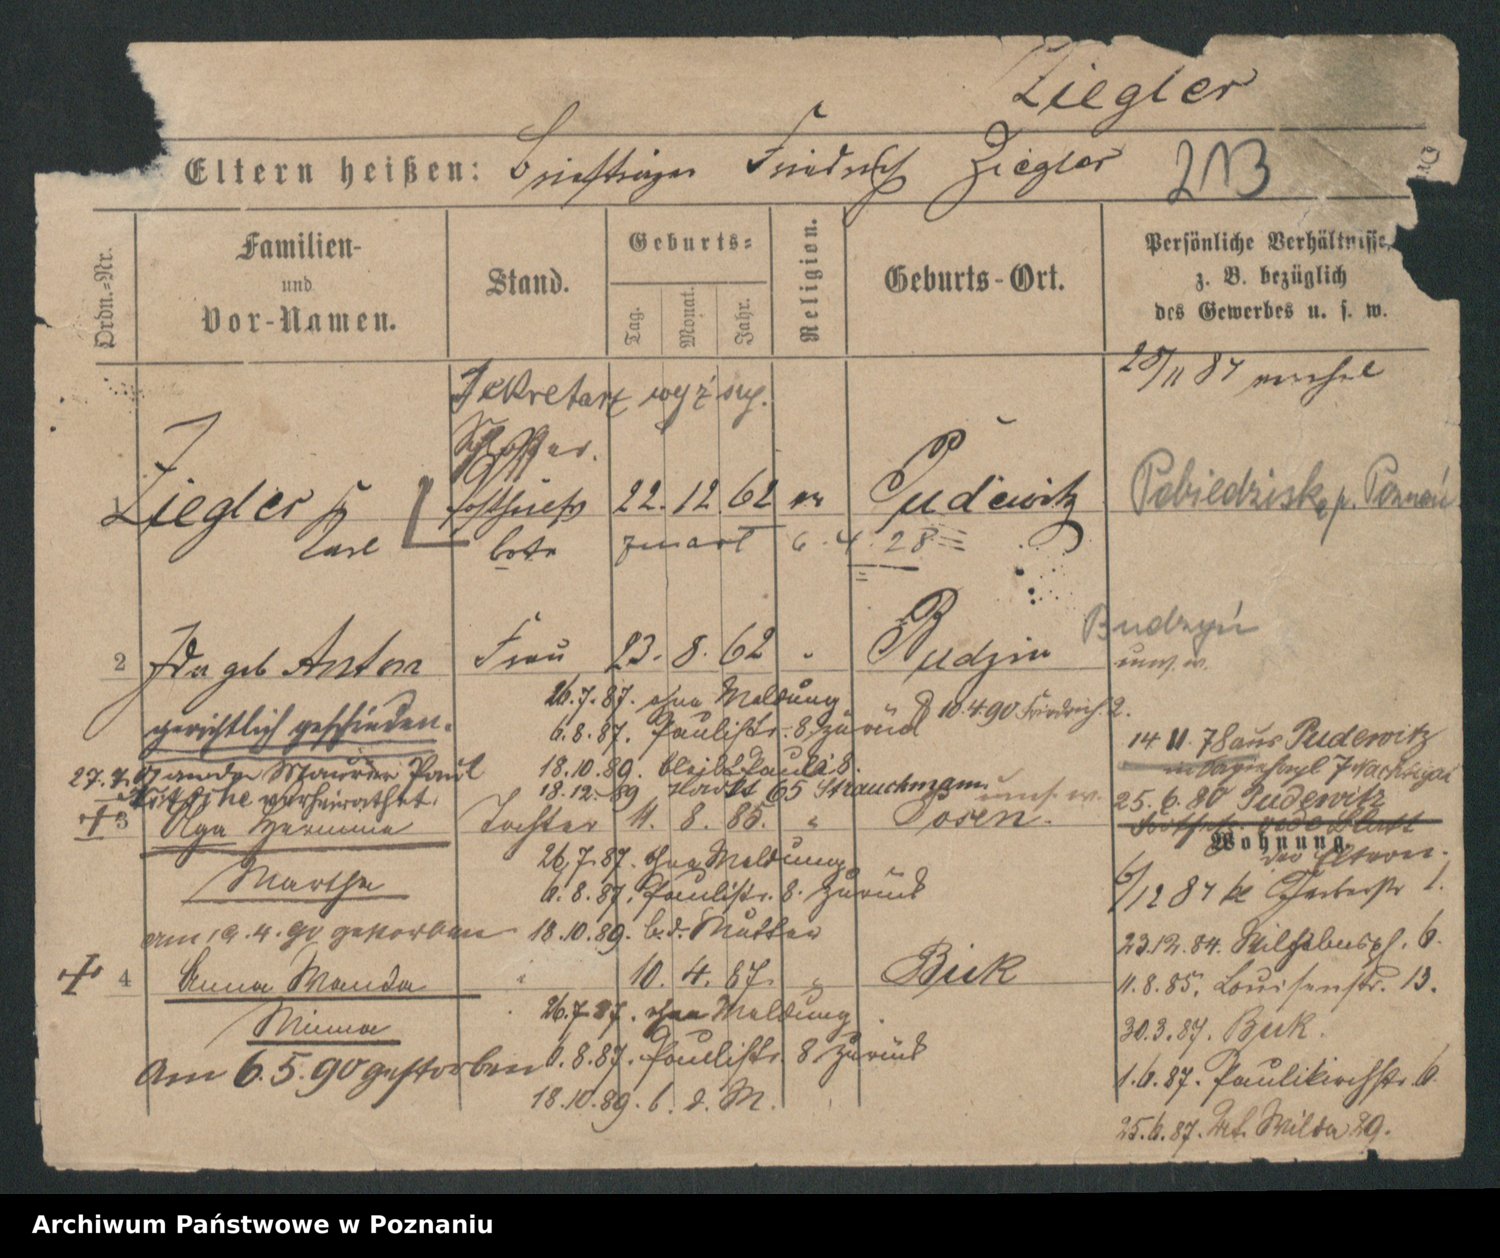 Ziegler
Eltern heißen: Briefträger Friedrich Ziegler 213
Ordn.-Nr.
Familien-
und
Vor-Namen.
Stand.
Geburts-
Tag. Monat. Jahr.
Religion.
Geburts-Ort.
Persönliche Verhältnisse,
z. B. bezüglich
des Gewerbes u. s. w.
Sekretarz
Schlosser.
1 Ziegler 22. 12. 62 Pudewitz
Carl bote zmarł 6. 4. 28
Pobiedziska p. Poznań
2 Ida geb Anton Frau 23. 8. 62 " Budzin
Budzyń
gerichtlich geschieden.
26.7.87. ohne Meldung
6.8.87. Paulistr. 8 zurück
10.4.90 Friedrich. 2.
18.10.89. bleibt Pauli 8.
18.12.89 Markt 65 Strauchmann
27.7.07 an den Maurer Paul
verheirathet.
14 11. 78 aus Pudewitz
25. 6. 80 Pudewitz
+ 3 Olga Hermine Tochter 11. 8. 85. " Posen.
Martha
26.7.87. ohne Meldung
6.8.87. Paulistr. 8. zurück
am 19.4.90 gestorben
18.10.89. b. d. Mutter
Wohnung.
der Eltern.
+ 4 Anna Wanda " 10. 4. 87. " Buk
Minna
26.7.87. ohne Meldung
am 6.5.90 gestorben
6.8.87. Paulistr. 8 zurück
18.10.89. b. d. M.
6/12 84 Gerberstr 1.
23.12.84. Wilhelmspl. 6.
11.8.85. Louisenstr. 13.
30.3.87. Buk.
1.6.87. Paulikirchstr. 6
25.6.87. Wilda 29.
Archiwum Państwowe w Poznaniu